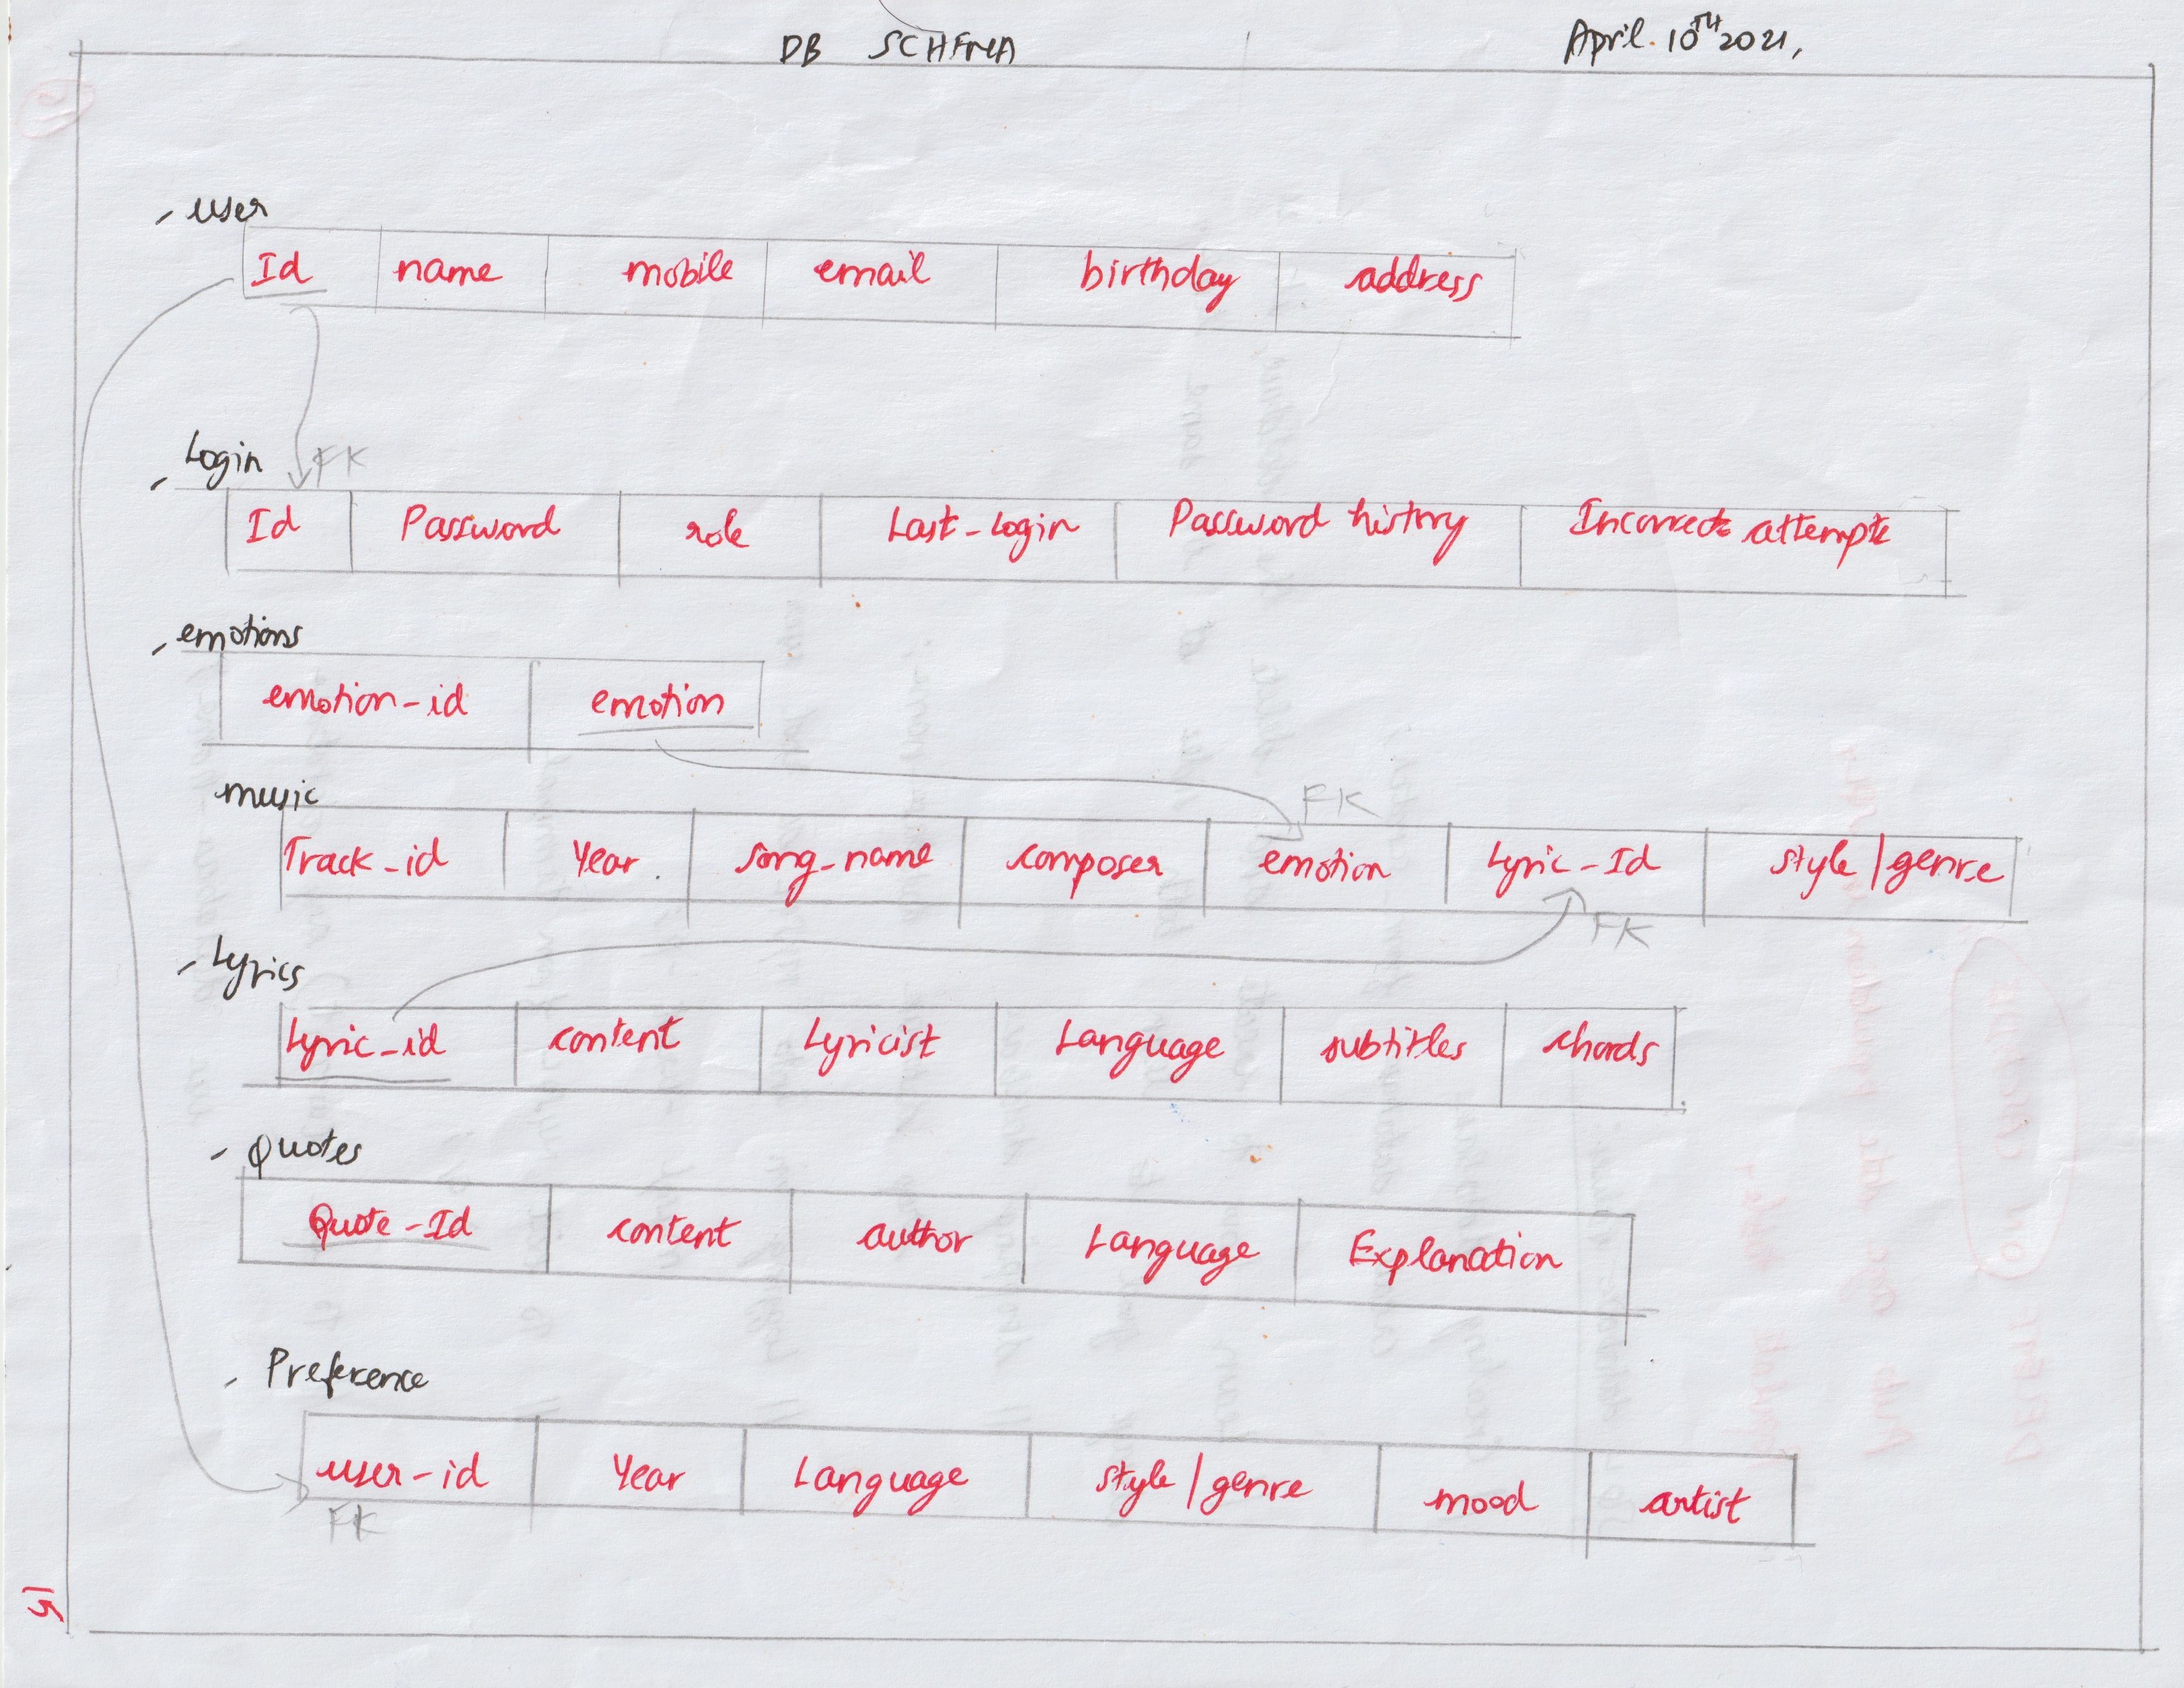 DB SCHEMA April. 10TH 2021,
user
Id name mobile email birthday address
Login FK
Id Password role Last_Login Password history Incorrect attempts
emotions
emotion-id emotion
music FK
Track_id Year. song_name composer emotion Lyric-Id style/genre
FK
Lyrics
Lyric_id content Lyricist Language subtitles chords
Quotes
Quote-Id content author Language Explanation
Preference
user-id Year Language style/genre mood artist
FK
15